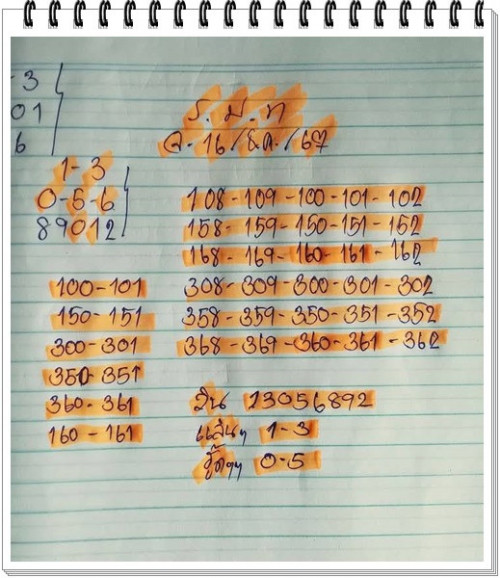 -3
01
6
ร.ม.ท
จ.-16/ธ.ค./67
1-3
0-5-6
89012
108-109-100-101-102
158-159-150-151-152
168-169-160-161-162
308-309-300-301-302
358-359-350-351-352
368-369-360-361-362
100-101
150-151
300-301
350-351
360-361
160-161
วิน 13056892
แล่นๆ 1-3
รู๊ดๆๆ 0-5